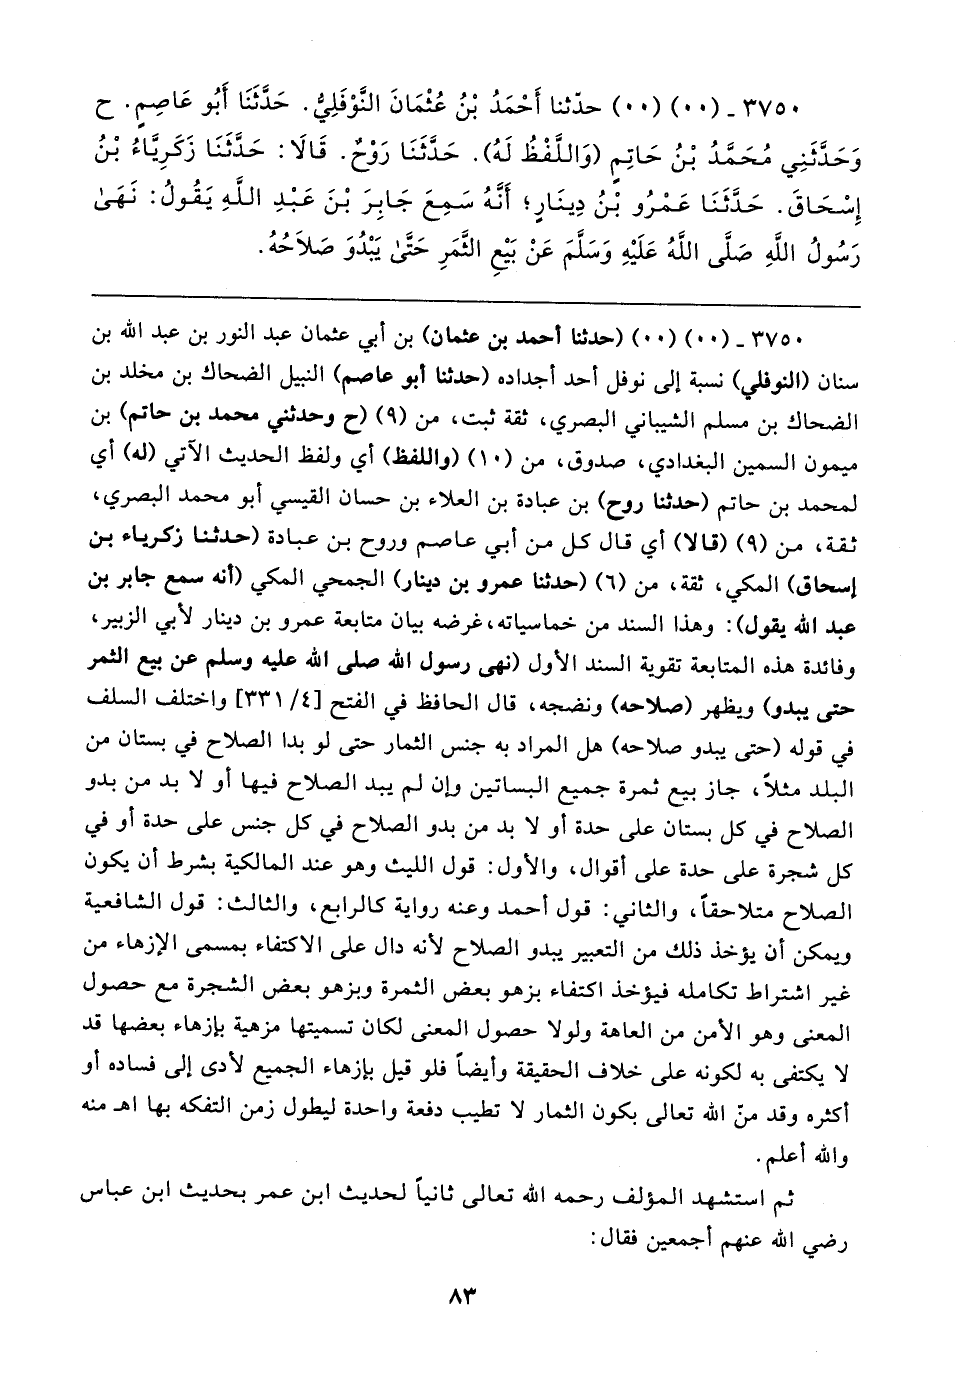 ٣٧٥٠ - (٠٠) (٠٠) حدّثنا أَحْمَدُ بْنُ عُثْمَانَ النَّوْفَلِيُّ. حَدَّثَنَا أَبُو عَاصِمٍ. ح
وَحَدَّثَنِي مُحَمَّدُ بْنُ حَاتِمٍ (وَاللَّفْظُ لَهُ). حَدَّثَنَا رَوْحٌ. قَالَا: حَدَّثَنَا زَكَرِيَّاءُ بْنُ
إِسْحَاقَ. حَدَّثَنَا عَمْرُو بْنُ دِينَارٍ؛ أَنَّهُ سَمِعَ جَابِرَ بْنَ عَبْدِ اللَّهِ يَقُولُ: نَهَىٰ
رَسُولُ اللَّهِ صَلَّى اللَّهُ عَلَيْهِ وَسَلَّمَ عَنْ بَيْعِ الثَّمَرِ حَتَّىٰ يَبْدُوَ صَلَاحُهُ.
٣٧٥٠ - (٠٠) (٠٠) (حدثنا أحمد بن عثمان) بن أبي عثمان عبد النور بن عبد الله بن
سنان (النوفلي) نسبة إلى نوفل أحد أجداده (حدثنا أبو عاصم) النبيل الضحاك بن مخلد بن
الضحاك بن مسلم الشيباني البصري، ثقة ثبت، من (٩) (ح وحدثني محمد بن حاتم) بن
ميمون السمين البغدادي، صدوق، من (١٠) (واللفظ) أي ولفظ الحديث الآتي (له) أي
لمحمد بن حاتم (حدثنا روح) بن عبادة بن العلاء بن حسان القيسي أبو محمد البصري،
ثقة، من (٩) (قالا) أي قال كل من أبي عاصم وروح بن عبادة (حدثنا زكرياء بن
إسحاق) المكي، ثقة، من (٦) (حدثنا عمرو بن دينار) الجمحي المكي (أنه سمع جابر بن
عبد الله يقول): وهذا السند من خماسياته، غرضه بيان متابعة عمرو بن دينار لأبي الزبير،
وفائدة هذه المتابعة تقوية السند الأول (نهى رسول الله صلى الله عليه وسلم عن بيع الثمر
حتى يبدو) ويظهر (صلاحه) ونضجه، قال الحافظ في الفتح [٤/ ٣٣١] واختلف السلف
في قوله (حتى يبدو صلاحه) هل المراد به جنس الثمار حتى لو بدا الصلاح في بستان من
البلد مثلاً، جاز بيع ثمرة جميع البساتين وإن لم يبد الصلاح فيها أو لا بد من بدو
الصلاح في كل بستان على حدة أو لا بد من بدو الصلاح في كل جنس على حدة أو في
كل شجرة على حدة على أقوال، والأول: قول الليث وهو عند المالكية بشرط أن يكون
الصلاح متلاحقاً، والثاني: قول أحمد وعنه رواية كالرابع، والثالث: قول الشافعية
ويمكن أن يؤخذ ذلك من التعبير يبدو الصلاح لأنه دال على الاكتفاء بمسمى الإزهاء من
غير اشتراط تكامله فيؤخذ اكتفاء بزهو بعض الثمرة وبزهو بعض الشجرة مع حصول
المعنى وهو الأمن من العاهة ولولا حصول المعنى لكان تسميتها مزهية بإزهاء بعضها قد
لا يكتفى به لكونه على خلاف الحقيقة وأيضاً فلو قيل بإزهاء الجميع لأدى إلى فساده أو
أكثره وقد منّ الله تعالى بكون الثمار لا تطيب دفعة واحدة ليطول زمن التفكه بها اهـ منه
والله أعلم.
ثم استشهد المؤلف رحمه الله تعالى ثانياً لحديث ابن عمر بحديث ابن عباس
رضي الله عنهم أجمعين فقال:
٨٣